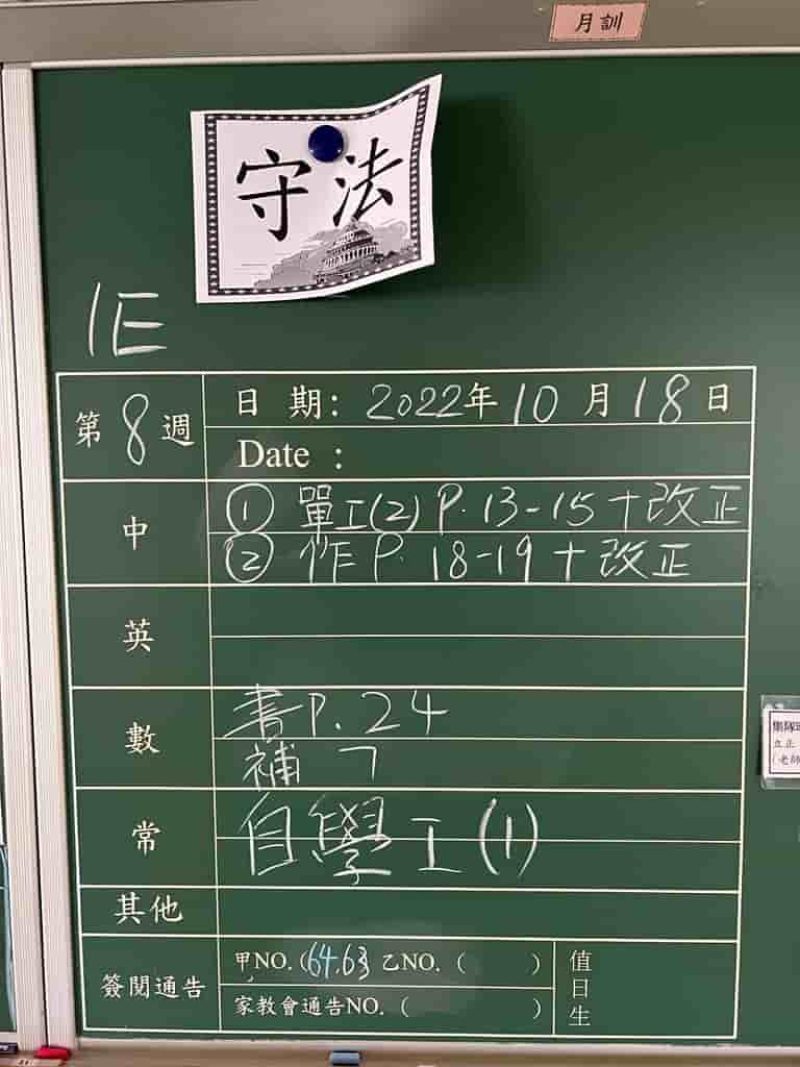 月訓
守法
1E
第8週
日 期：2022年10月18日
Date ：
中
① 單工(2) P.13-15十改正
② 作 P. 18-19 十 改正
英
數
書P. 24
補 7
常
自學工(1)
其他
簽閱通告
甲NO.(64,63) 乙NO.( )
家教會通告NO.( )
值日生
集隊
立正
(老師